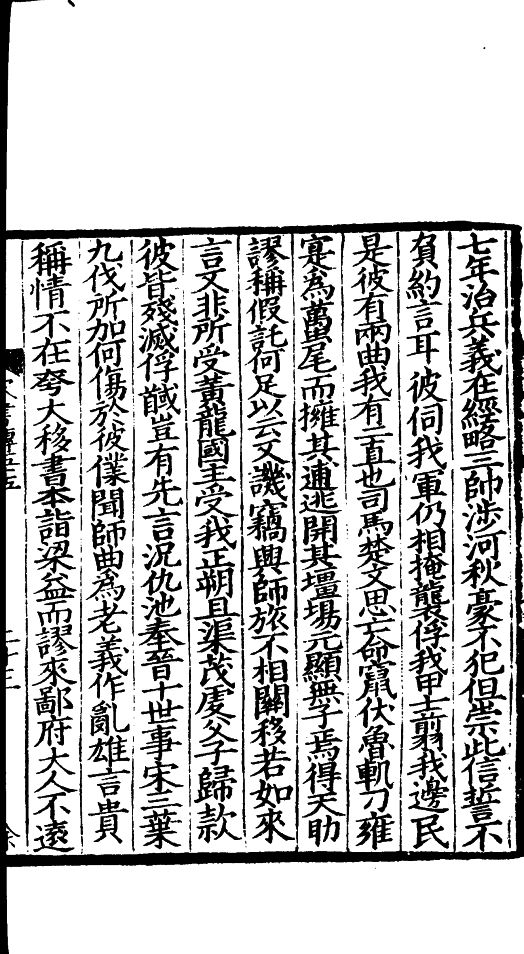 七年治兵義在經略三帥涉河秋豪不犯但崇此信誓不
負約言耳彼伺我軍仍相掩襲俘我甲士翦我邊民
是彼有兩曲我有二直也司馬楚文思亡命竄伏魯軌刁雍
寔為蠆尾而擁其逋逃開其壃埸元顯無子焉得天助
謬稱假託何足以云又譏竊興師旅不相關移若如來
言又非所受黃龍國主受我正朔且渠茂虔父子歸款
彼皆殘滅俘馘豈有先言況仇池奉晉十世事宋三葉
九伐所加何傷於彼僕聞師曲為老義作亂雄言貴
稱情不在夸大移書本詣梁益而謬來鄙府大人不遠